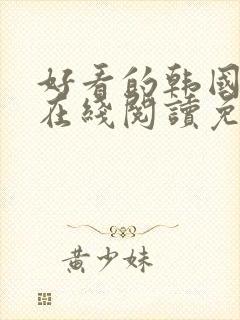 好看的韩国
在綫閱讀免
黄少妹